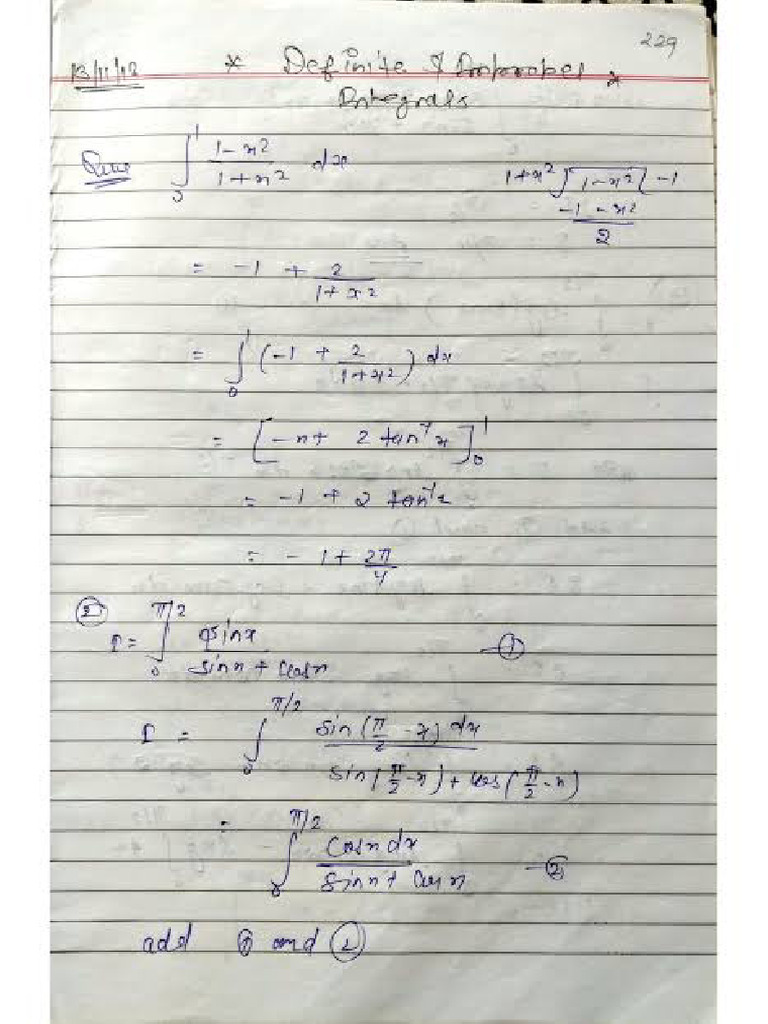 229
13/11/12 * Definite & Improper *
Integrals
Ques ∫₀¹ (1-x²)/(1+x²) dx
1+x² ) 1-x² ( -1
-1 -x²
2
= -1 + 2/(1+x²)
= ∫₀¹ (-1 + 2/(1+x²)) dx
= [-x + 2 tan⁻¹ x]₀¹
= -1 + 2 tan⁻¹
= -1 + 2π/4
② I = ∫₀^(π/2) sinx/(sinx + cosx) —①
I = ∫₀^(π/2) sin(π/2 -x) dx/(sin(π/2 -x) + cos(π/2 -x))
= ∫₀^(π/2) cosx dx/(sinx + cosx) —②
add ① and ②